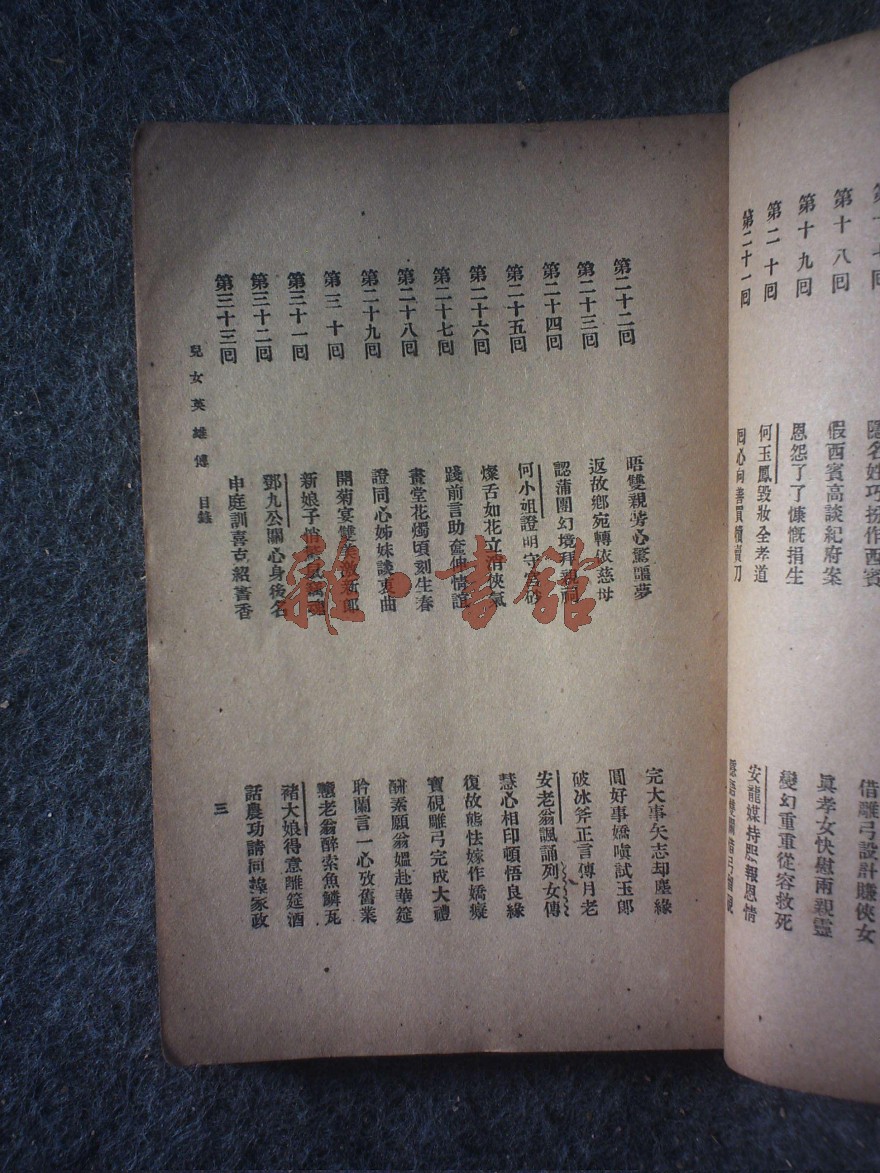 第十八回 假西賓高談紀府案 眞孝女快慰兩親靈
第十九回 恩怨了了慷慨捐生 變幻重重從容救死
第二十回 何玉鳳毀妝全孝道 安龍媒持服報恩情
第二十一回 回心向善買犢賣刀
隱名姓巧扮作西賓 借雕弓設計賺俠女
第二十二回 晤雙親芳心驚噩夢 完大事矢志却塵緣
第二十三回 返故鄉宛轉依慈母 圓好事嬌嗔試玉郎
第二十四回 認蒲團幻境拜親祠 破冰斧正言傅月老
第二十五回 何小姐證明守宮砂 安老翁諷誦列女傳
第二十六回 燦舌如花立消俠氣 慧心相印頓悟良緣
第二十七回 踐前言助奩伸情誼 復故態怯嫁作嬌癡
第二十八回 畫堂花燭頃刻生春 寶硯雕弓完成大禮
第二十九回 證同心姊妹談衷曲 酬素願翁媼赴華筵
第三十回 開菊宴雙美激新郎 聆蘭言一心攷舊業
第三十一回 新娘子悄 戇老翁醉索魚鱗瓦
第三十二回 鄧九公關心身後名 褚大娘得意離筵酒
第三十三回 申庭訓喜克紹書香 話農功請同操家政
兒女英雄傳 目錄
三
雜·書館